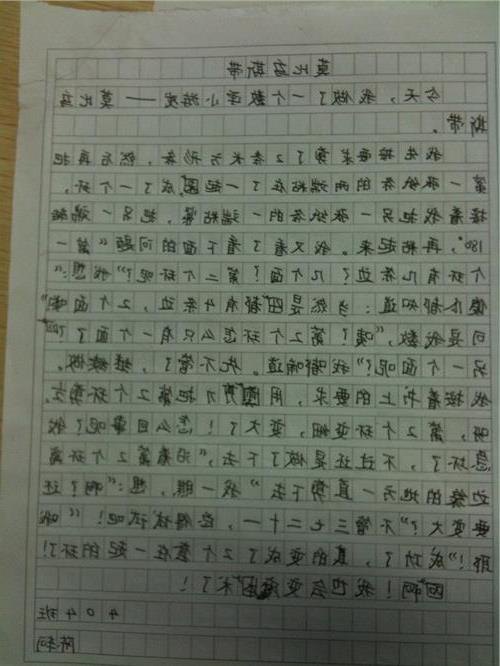 莫比乌斯带
今天，我做了一个数学小游戏——莫比乌
斯带。
我先按要求剪了2条长方形条，然后再把
第一张纸条的两端粘在了一起围成了一个环。
接着我把另一张纸条的一端粘紧，把另一端翻
180°，再粘起来。我又看了看下面的问题“第一
个环有几条边？几个面？第二个环呢？”我想：“
傻瓜都知道：当然是都有4条边，2个面啦”
可是我数，“咦！第2个环怎么只有一个面了？
另一个面呢？”我嘟喃道。先不管了，继续做。
我按着书上的要求，用剪刀把第2个环剪
啊，第2个环变细，变大了！怎么回事呢？我
急坏了，不过还是做了下去，“沿着第2个环离
边缘的地方一直剪下去”我一瞧，想：“啊？还
要变大？”不管三七二十一，总得试试吧！“哦
耶！”成功了，真的变成了2个套在一起的环了！
啊！我也会变魔术了！
404班
陈